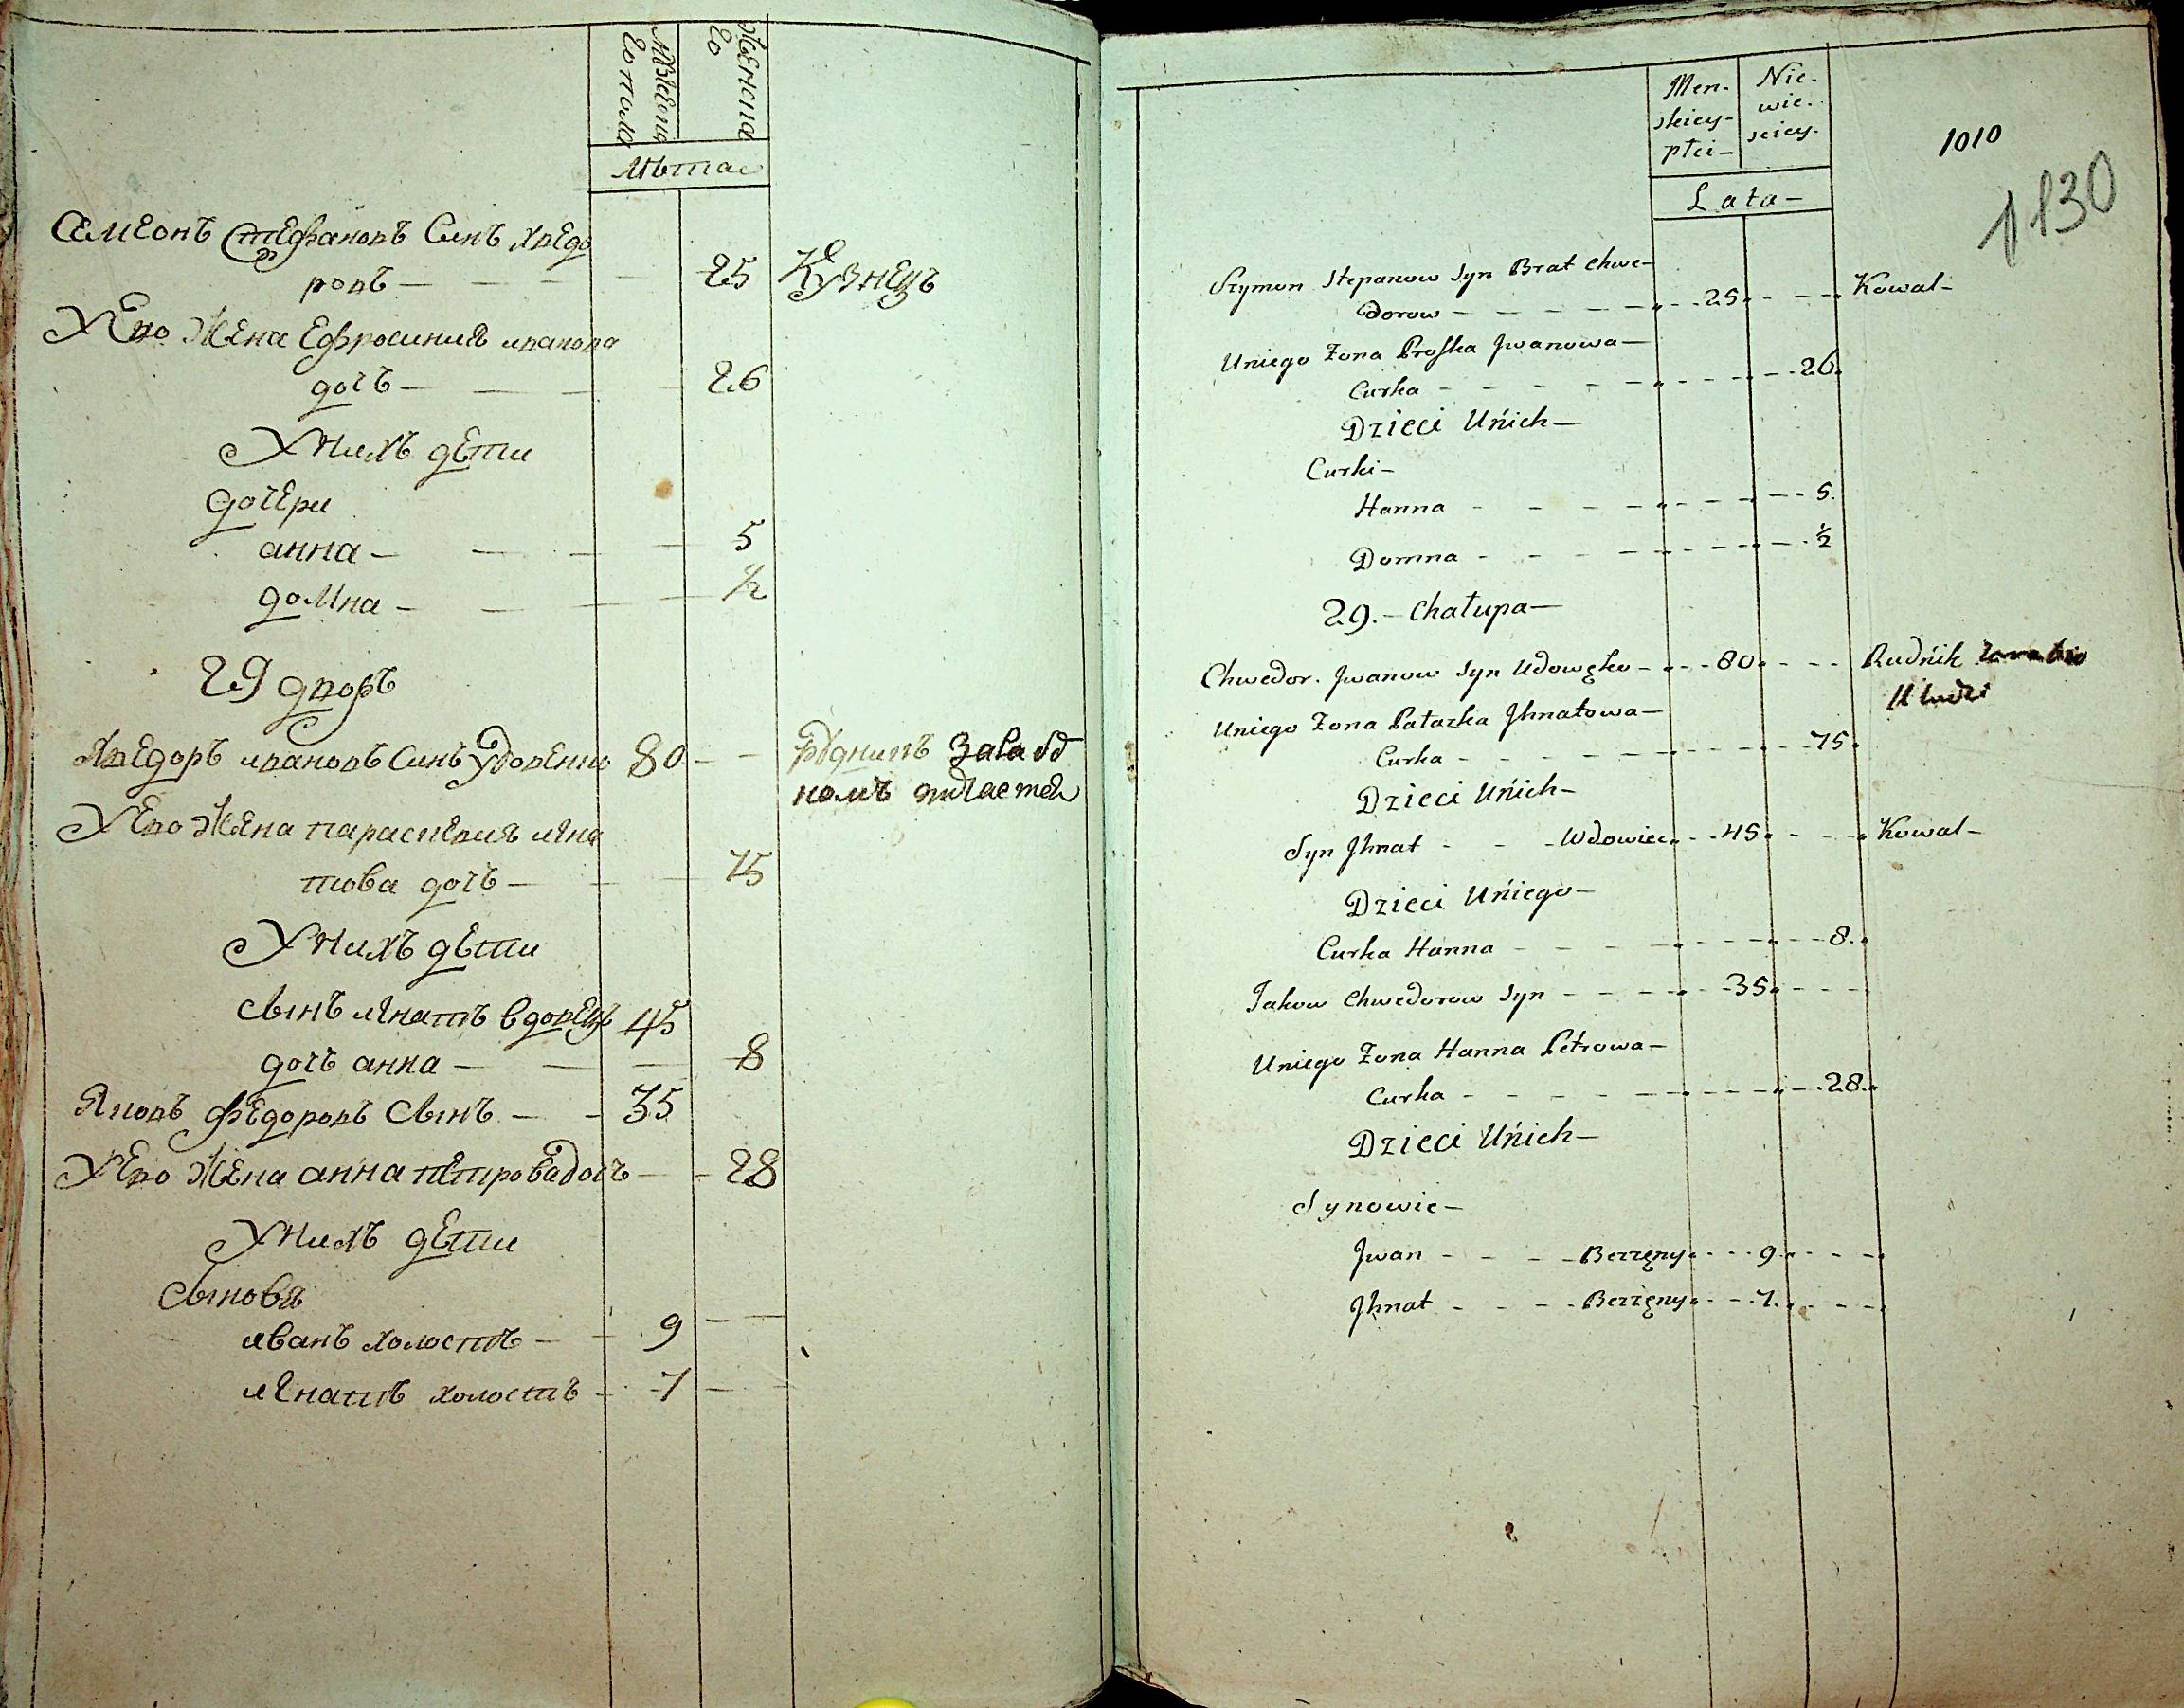 Мужеска
го пола
Женска
го
Лѣта
Семионъ Стефановъ Синъ хведо
ровъ — 25 Кузнецъ
У Его Жена Ефросиния иванова
дочъ — 26
У Нихъ дети
дочери
анна — 5
домна — ½
29 дворъ
Хведоръ ивановъ Синъ Удовенко 80 — рудникъ
комъ питается
У Его Жена параскевия игна
това дочъ — 75
У Нихъ дети
Сынъ игнатъ вдовецъ 45
дочъ анна — 8
Яковъ федоровъ Сынъ — 35
У Его Жена анна петрова дочъ — 28
У Нихъ дети
Сыновя
иванъ холостъ — 9
игнатъ холостъ — 7
Men-
skiey-
płci-
Nie-
wie-
sciey-
1010
1130
Lata-
Szymon Stepanow Syn Brat Chwe-
dorow — 25 — Kowal-
Uniego Zona Proska Jwanowa-
Curka — 26
Dzieci Unich-
Curki-
Hanna — 5
Domna — ½
29.- Chałupa-
Chwedor. Jwanow Syn Udowęko — 80 — Rudnik
Uniego Zona Patazka Jhnatowa-
Curka — 75
Dzieci Unich-
Syn Jhnat — Wdowiec — 45 — Kowal-
Dzieci Uniego-
Curka Hanna — 8
Jakow Chwedorow Syn — 35
Uniego Zona Hanna Petrowa-
Curka — 28
Dzieci Unich-
Synowie-
Jwan — Bezzęny — 9
Jhnat — Bezzęny — 7